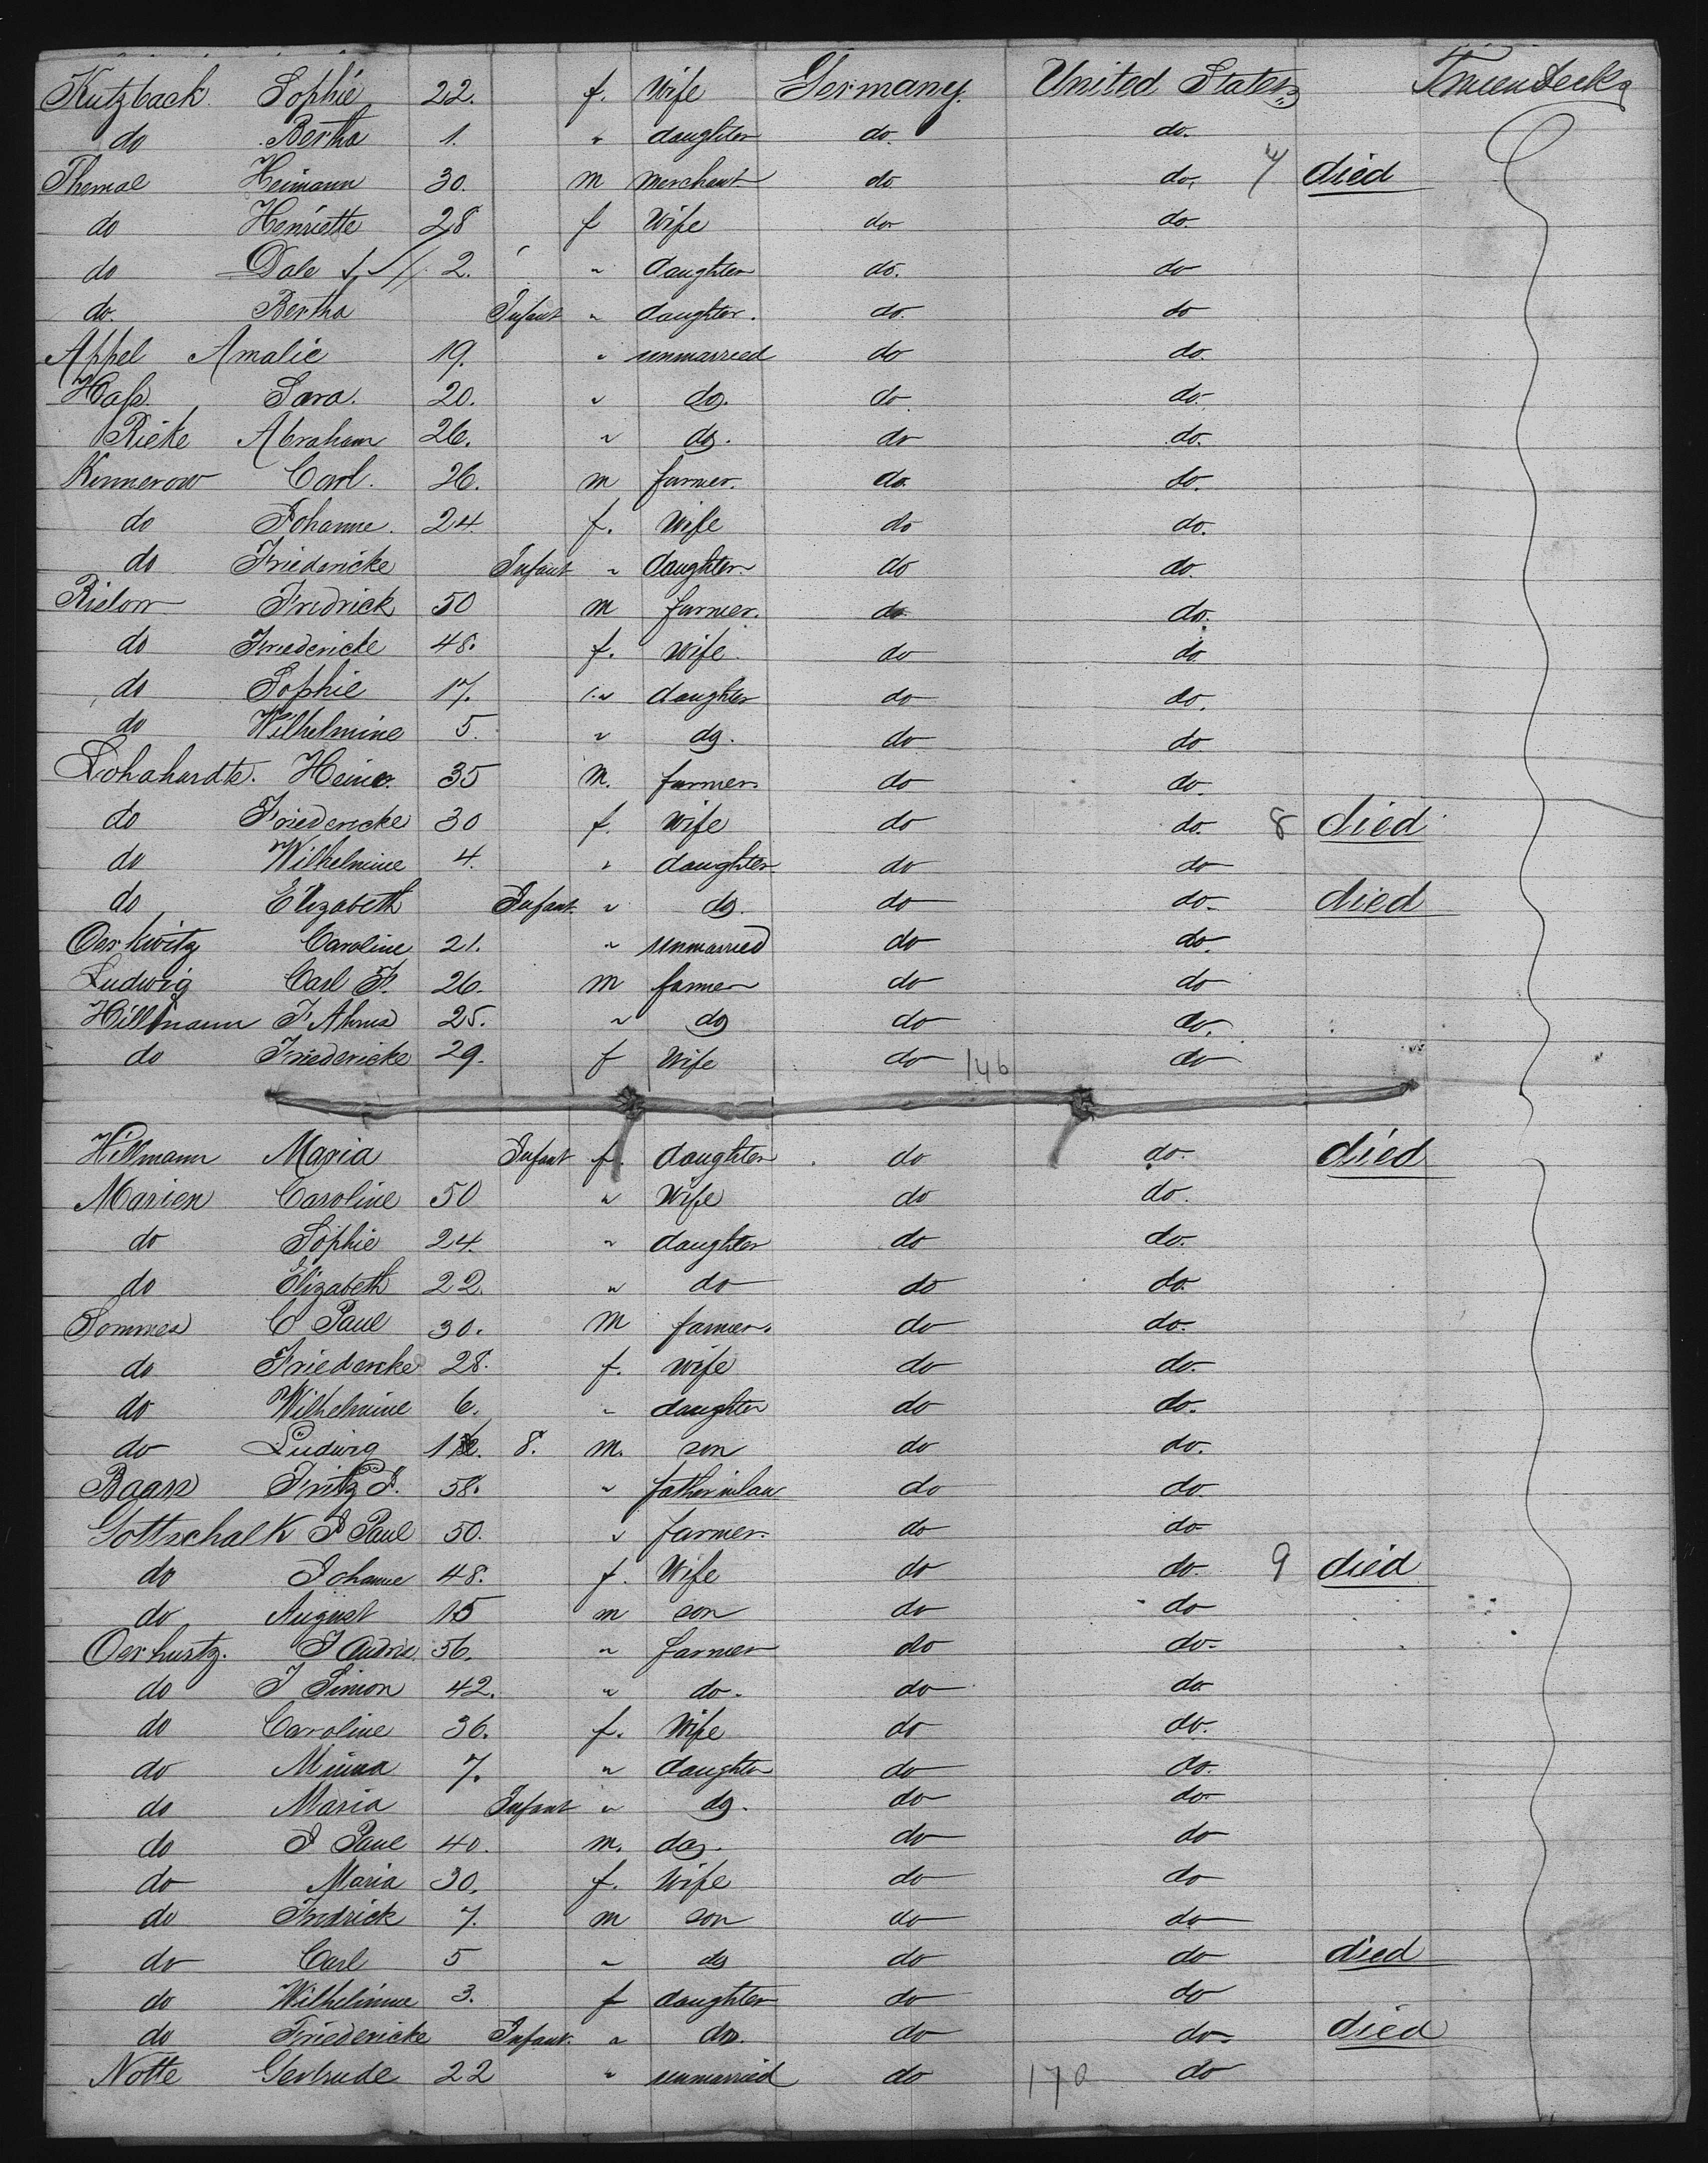 Kutzback Sophie 22. f. Wife Germany. United States Tweendeck
do Bertha 1. " daughter do. do.
Themal Heimann 30. m merchant do. do. died
do Henriette 28 f Wife do do.
do Dale 2. " daughter do. do
do. Bertha Infant " daughter. do. do
Appel Amalie 19. " unmarried do do.
Hass Sara. 20. " do. do do.
Rieke Abraham 26. " do. do do.
Kennerow Carl. 26. m farmer. do. do.
do Johanne. 24 f. Wife do do.
do Friedericke Infant " daughter. do do.
Fredrick 50 m farmer. do do.
do Friedericke 48. f. Wife. do do.
do Sophie 17. " daughter do do.
do Wilhelmine 5. " do. do do
Heinr. 35 m. farmer do do.
do Friedericke 30 f. Wife do do. 8 died
do Wilhelmine 4. " daughter do do
do Elizabeth Infant " do. do do. died
Caroline 21. " unmarried do do.
Ludwig Carl F. 26. m farmer do do
Hillmann 25. " do do do.
do Friedericke 29. f Wife do 146 do
Hillmann Maria Infant f. daughter do do. died
Marien Caroline 50 " Wife do do.
do Sophie 24. " daughter do do.
do Elizabeth 22. " do do do.
C Paul 30. m farmer. do do.
do Friedericke 28. f. wife do do.
do Wilhelmine 6. " daughter do do.
do Ludwig 8. m. son do do.
Fritz J. 58. " father inlaw do do.
Gottschalk J Paul 50. " farmer. do do
do Johanne 48. f. Wife do do. 9 died
do August 15 m son do do
56. " farmer do do.
do J Simon 42. " do. do do
do Caroline 36. f. Wife do do.
do Minna 7. " daughter do do.
do Maria Infant " do. do do
do J Paul 40. m. do. do do
do Maria 30. f. Wife do do
do Fredrick 7. m son do do
do Carl 5 " do do do died
do Wilhelmine 3. f daughter do do
do Friedericke Infant. " do. do do. died
Notte Gertrude 22 " unmarried do 170 do